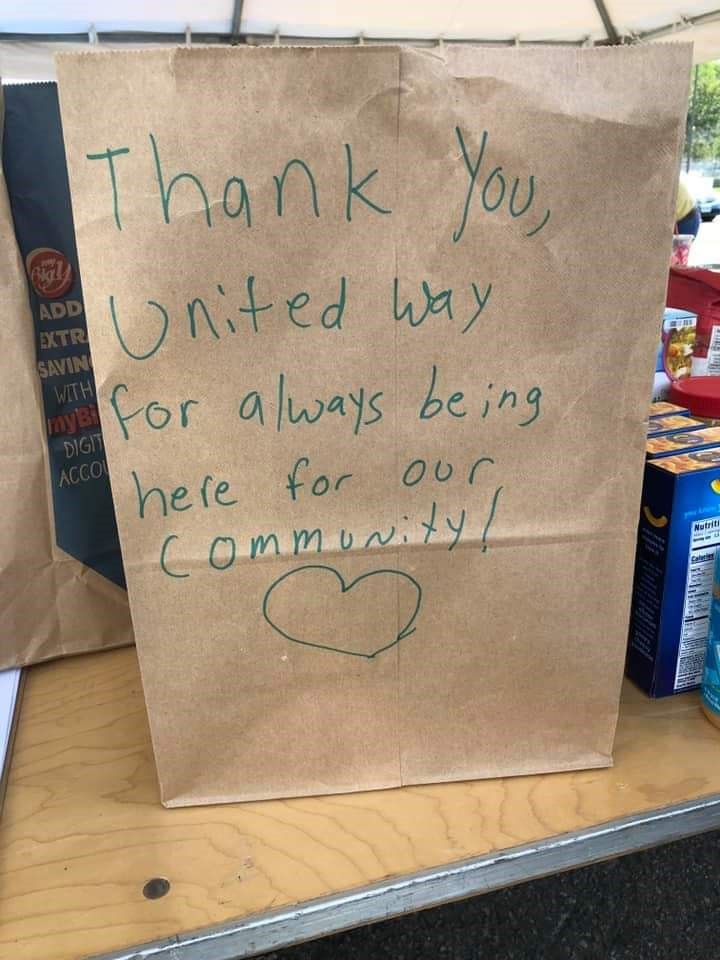 Thank You,
United Way
for always being
here for our
Community!
my
BigY
ADD
EXTR
SAVIN
WITH
myBi
DIGIT
ACCOU
Nutriti
Calories